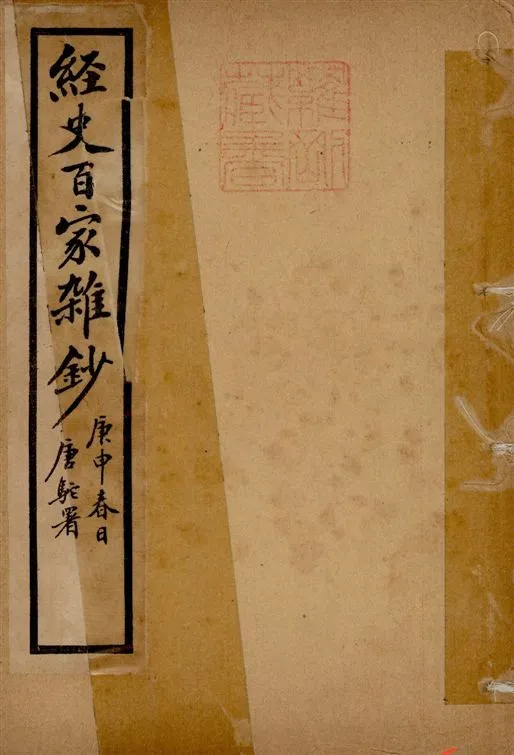 藏書
経史百家雑鈔
庚申春日
唐駝署